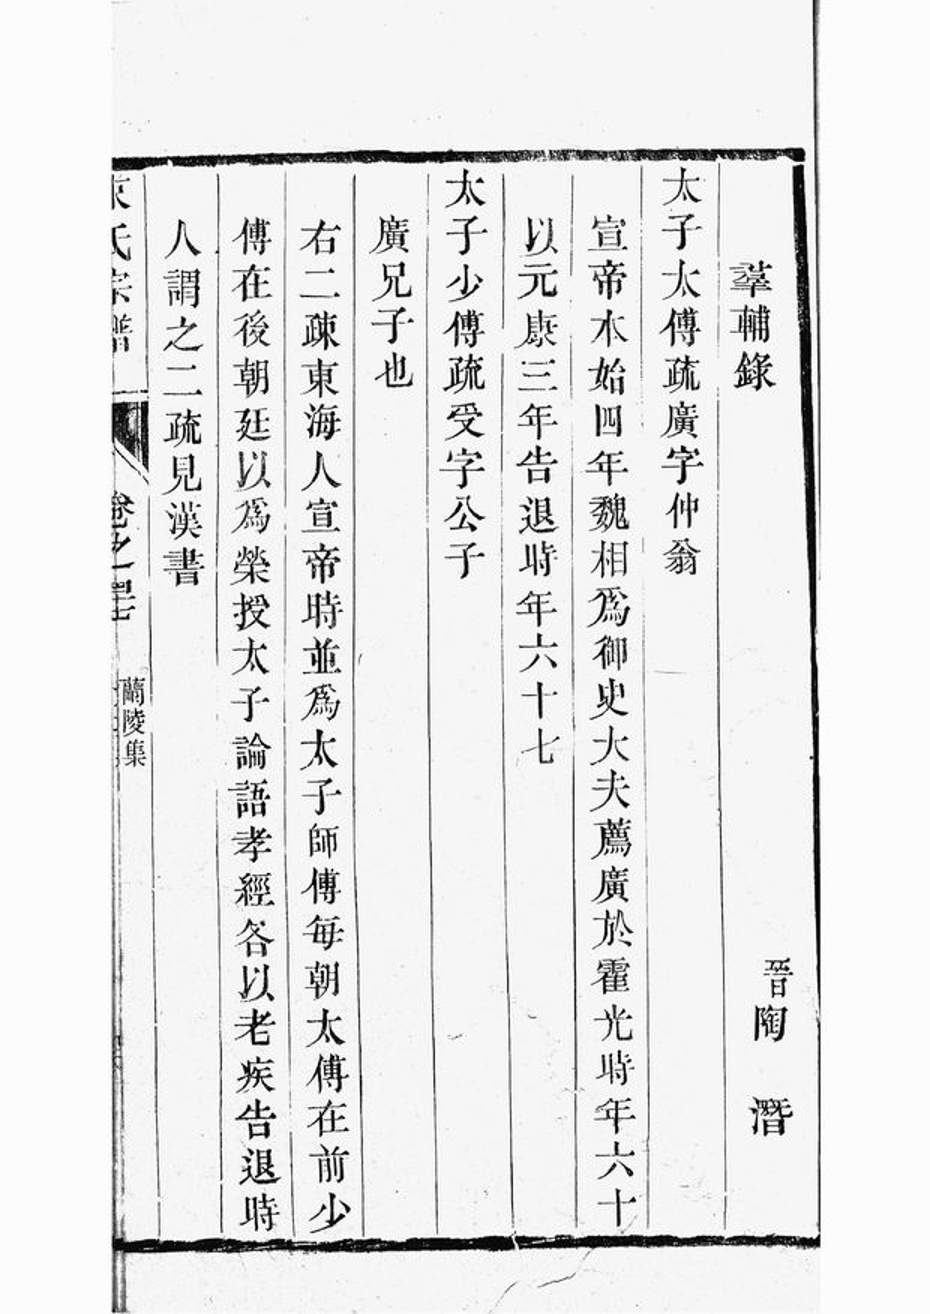 羣輔錄
晉陶 潛
太子太傅疏廣字仲翁
宣帝本始四年魏相爲御史大夫薦廣於霍光時年六十
以元康三年告退時年六十七
太子少傅疏受字公子
廣兄子也
右二疎東海人宣帝時並爲太子師傅每朝太傅在前少
傅在後朝廷以爲榮授太子論語孝經各以老疾告退時
人謂之二疏見漢書
氏宗譜
卷之
蘭陵集